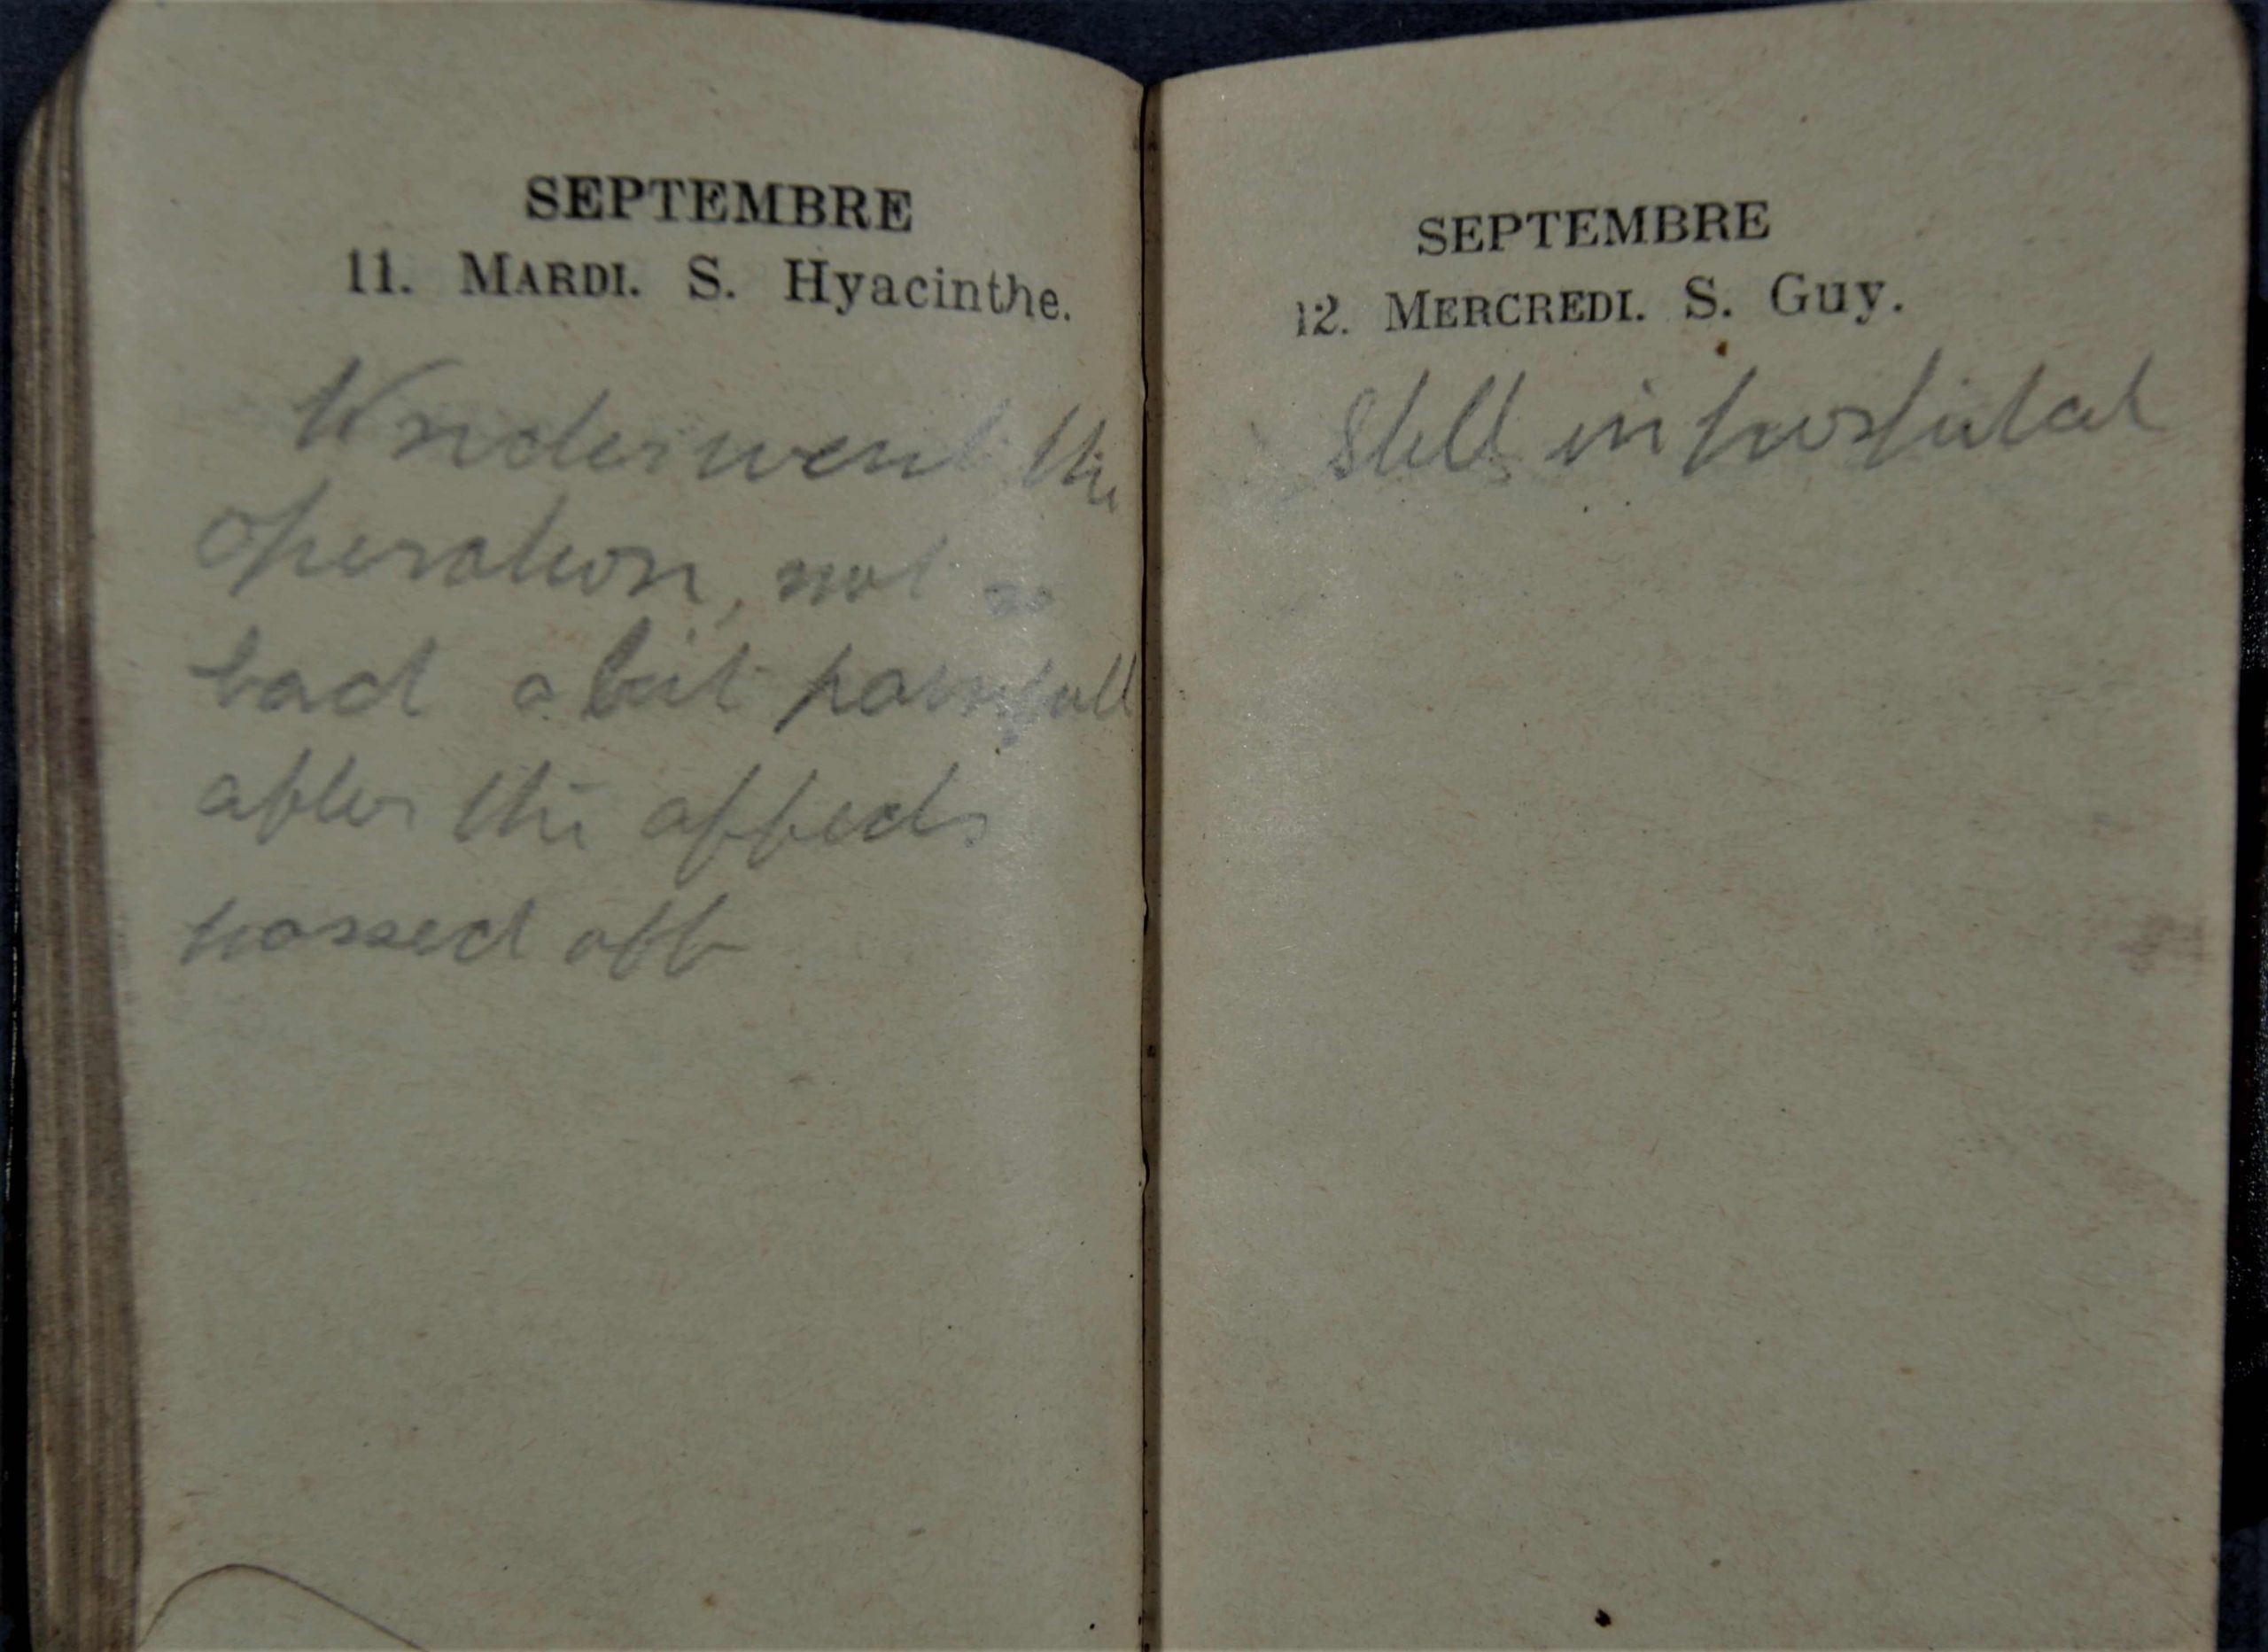 SEPTEMBRE
11. MARDI. S. Hyacinthe.
Underwent the
operation, not so
bad a bit painfull
after the affects
passed off
SEPTEMBRE
12. MERCREDI. S. Guy.
Still in hospital